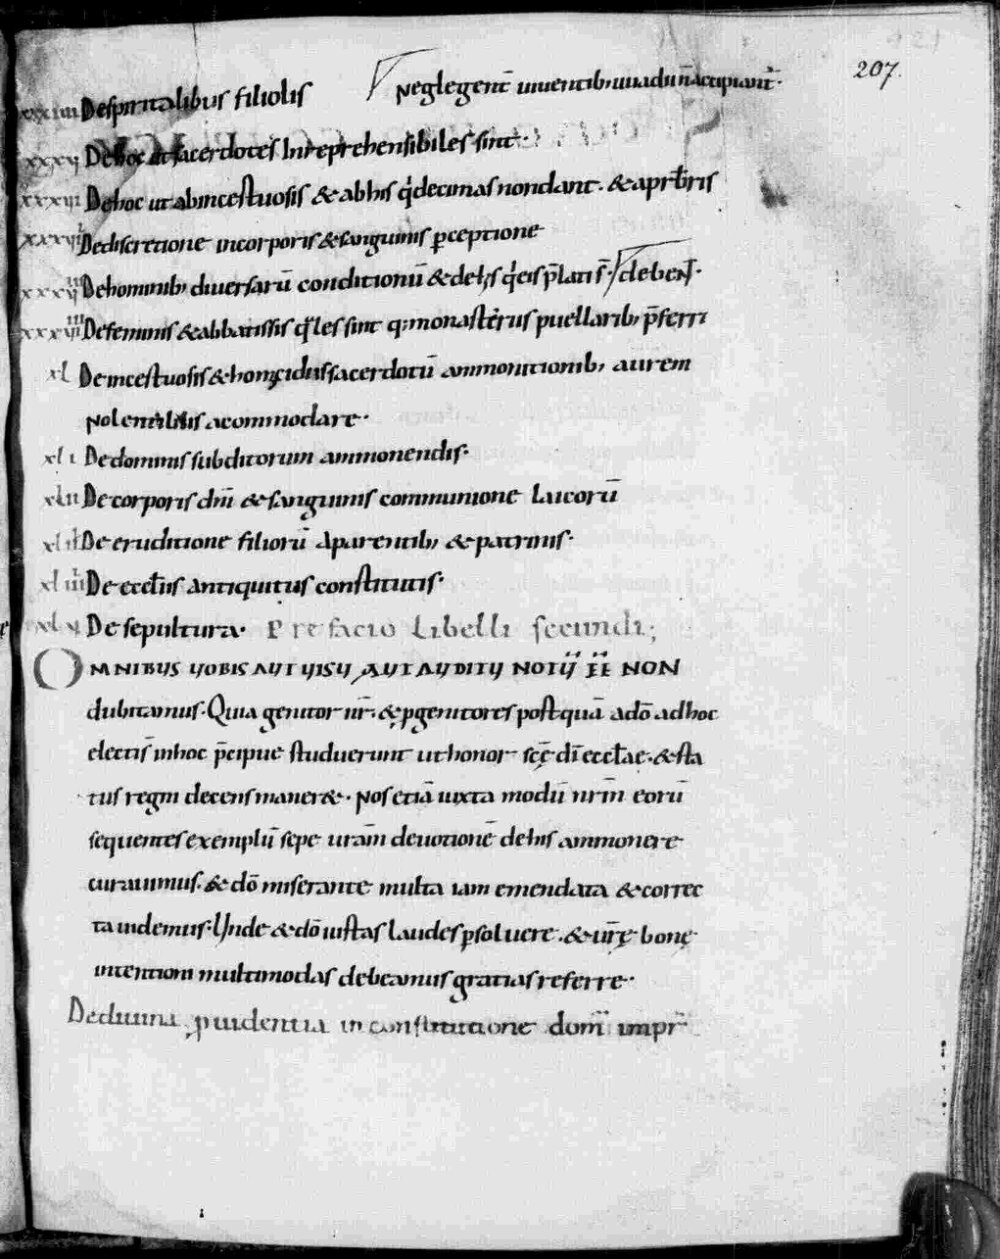 207.
xxxiiii De spiritalibus filiolis neglegent̄ uiuentib; uuadū n̄ accipiant̄·
xxxv De hoc ut sacerdotes Inreprehensibiles sint·
xxxvi De hoc ut abincestuosis & abhis q́ decimas non dant· & aprb̄ris
xxxvii De discretione incorporis & sanguinis p̄ceptione
xxxviii De hominib; diuersarū conditionū & de his q́ eis p̄lati s̄· debeN̄·
xxxviiii De feminis & abbatissis q̄les sint q; monasteriis puellarib; p̄ferri
xl De incestuosis & homicidiis sacerdotū ammonitionib; aurem
nolentibus acommodare·
xli De dominis subditorum ammonendis·
xlii De corporis dn̄i & sanguinis communione laicorū
xliii De eruditione filiorū aparentib; & patrinis·
xliiii De eccl̄iis antiquitus constitutis·
xlv De sepultura· Prefacio Libelli secundi;
OMNIBUS UOBIS AUT UISU AUT AUDITU NOTŪ EE NON
dubitamus· Quia genitor nr̄· & pgenitores postquā adō adhoc
electi s̄ inhoc p̄cipue studuerunt ut honor scę̄ dī eccl̄ae· & sta
tus regni decens maner&· Nos etiā iuxta modū nr̄m eorū
sequentes exemplū sepe uram̄ deuotionē de his ammonere
curauimus· & dō miserante multa iam emendata & correc
ta uidemus· Unde & dō iustas laudes psoluere· & ur̄ę bonę
intentioni multimodas debeamus gratias referre·
De diuina puidentia in constitutione domī impr̄